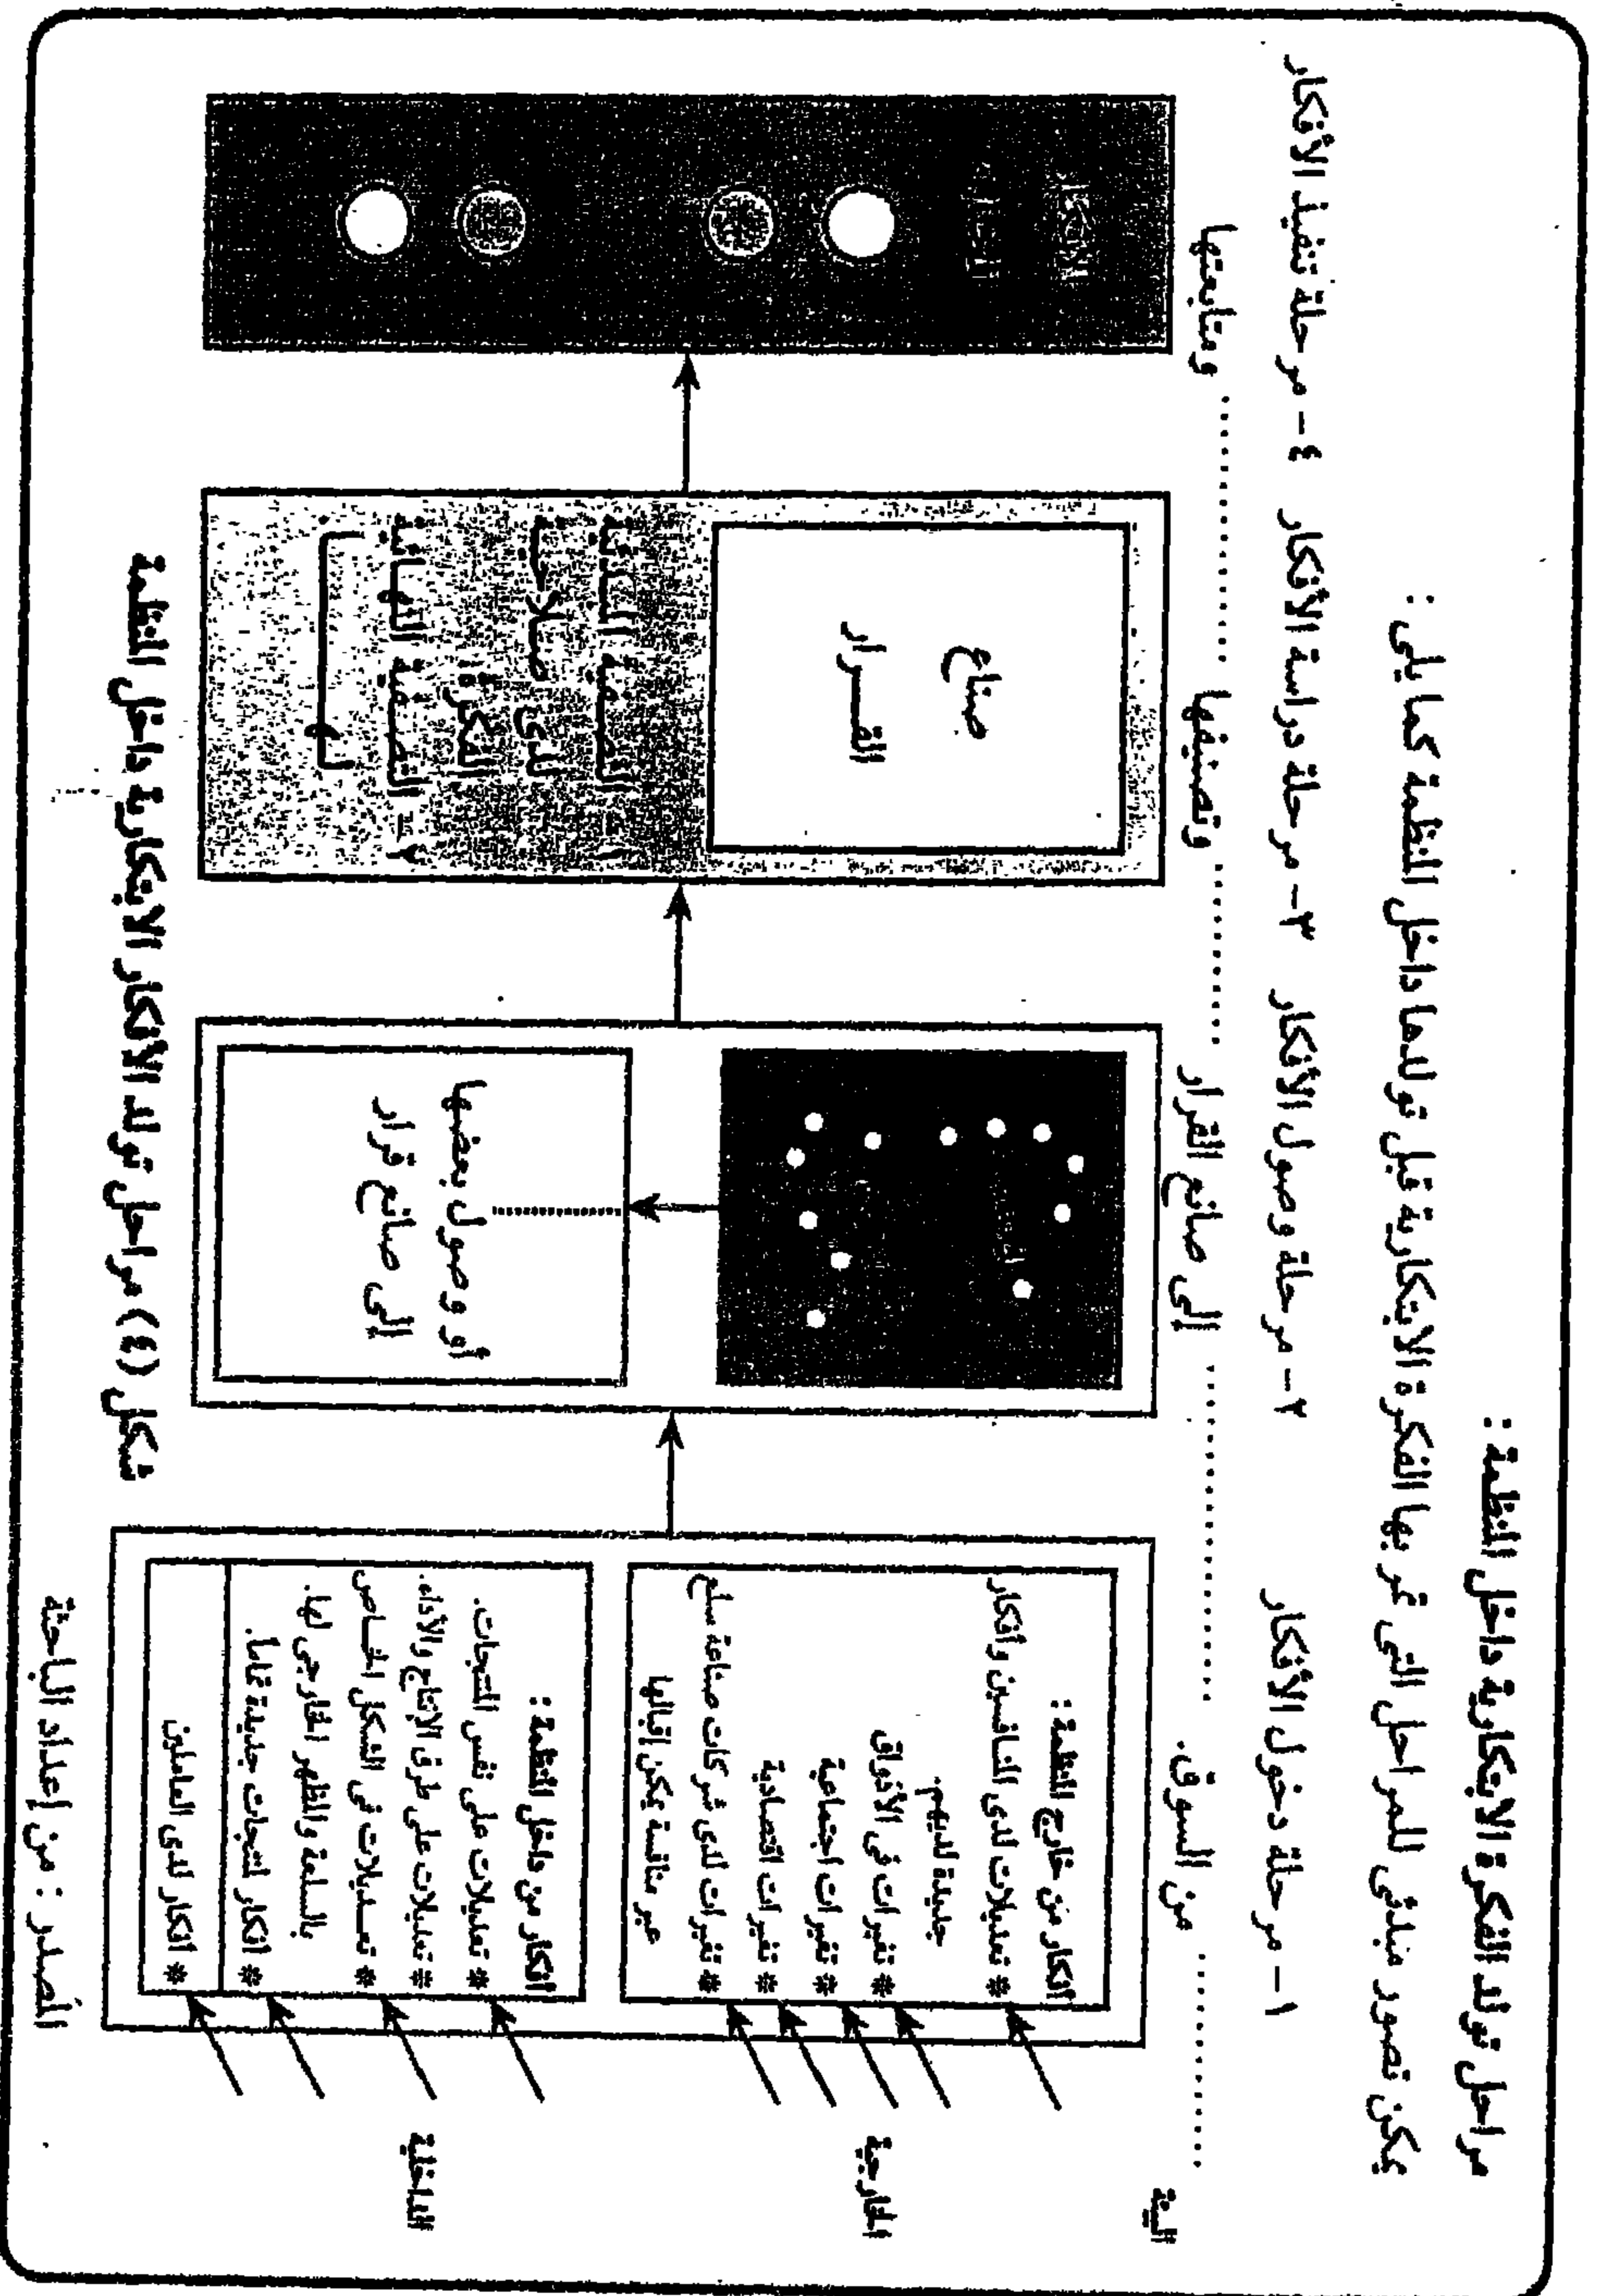 مراحل تولد الفكرة الابتكارية داخل المنظمة :
يمكن تصور مبدئى للمراحل التى تمر بها الفكرة الابتكارية قبل تولدها داخل المنظمة كما يلى :
١- مرحلة دخول الأفكار
من السوق.
٢- مرحلة وصول الأفكار
إلى صانع القرار
٣- مرحلة دراسة الأفكار
وتصنيفها
٤- مرحلة تنفيذ الأفكار
ومتابعتها
البيئة
الخارجية
الداخلية
أفكار من خارج المنظمة :
* تعديلات لدى المنافسين وأفكار
جديدة لديهم.
* تغيرات فى الأذواق
* تغيرات اجتماعية
* تغيرات اقتصادية
* تغيرات لدى شركات صناعة سلع
غير منافسة يمكن إقبالها
أفكار من داخل المنظمة :
* تعديلات على نفس المنتجات.
* تعديلات على طرق الإنتاج والأداء.
* تعـديلات فى الشكل الخـاص
بالسلعة والمظهر الخارجى لها.
* أفكار لمنتجات جديدة تماماً.
* أفكار لدى العاملين
أو وصول بعضها
إلى صانع قرار
صناع
القـــرار
١- التصفية المبدئية
لمدى صلاحـــية
الفكرة
٢- التصفية النهائية
لهـــا
شكل (٤) مراحل تولد الأفكار الابتكارية داخل المنظمة
المصدر : من إعداد الباحثة